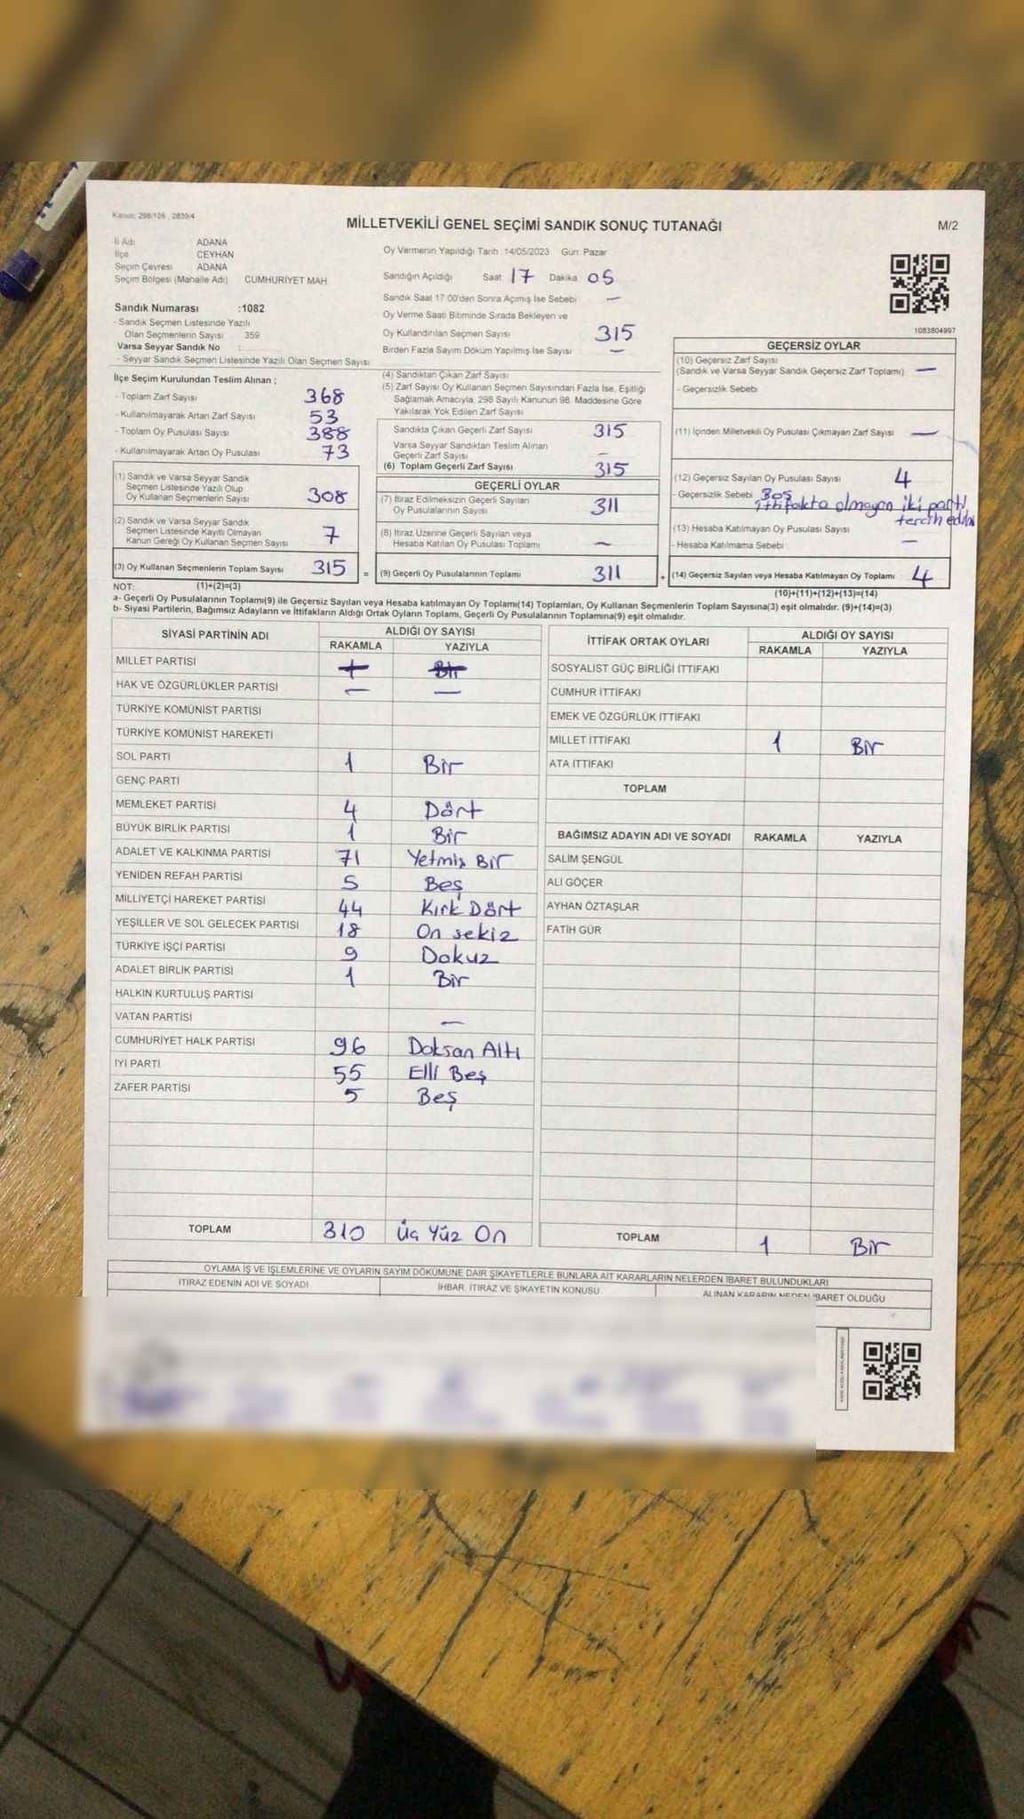 Kanun: 298/105 , 2839/4
MİLLETVEKİLİ GENEL SEÇİMİ SANDIK SONUÇ TUTANAĞI
M/2
İl Adı ADANA
İlçe CEYHAN
Seçim Çevresi ADANA
Seçim Bölgesi (Mahalle Adı) CUMHURİYET MAH
Sandık Numarası :1082
- Sandık Seçmen Listesinde Yazılı
Olan Seçmenlerin Sayısı 359
Varsa Seyyar Sandık No
- Seyyar Sandık Seçmen Listesinde Yazılı Olan Seçmen Sayısı
Oy Vermenin Yapıldığı Tarih :14/05/2023 Gün: Pazar
Sandığın Açıldığı Saat 17 Dakika 05
Sandık Saat 17:00'den Sonra Açımış İse Sebebi —
Oy Verme Saati Bitiminde Sırada Bekleyen ve
Oy Kullandırılan Seçmen Sayısı 315
Birden Fazla Sayım Döküm Yapılmış İse Sayısı —
1083804997
İlçe Seçim Kurulundan Teslim Alınan ;
- Toplam Zarf Sayısı 368
- Kullanılmayarak Artan Zarf Sayısı 53
- Toplam Oy Pusulası Sayısı 388
- Kullanılmayarak Artan Oy Pusulası 73
(1) Sandık ve Varsa Seyyar Sandık
Seçmen Listesinde Yazılı Olup
Oy Kullanan Seçmenlerin Sayısı 308
(2) Sandık ve Varsa Seyyar Sandık
Seçmen Listesinde Kayıtlı Olmayan
Kanun Gereği Oy Kullanan Seçmen Sayısı 7
(3) Oy Kullanan Seçmenlerin Toplam Sayısı 315 =
(4) Sandıktan Çıkan Zarf Sayısı
(5) Zarf Sayısı Oy Kullanan Seçmen Sayısından Fazla İse, Eşitliği
Sağlamak Amacıyla, 298 Sayılı Kanunun 98. Maddesine Göre
Yakılarak Yok Edilen Zarf Sayısı
Sandıkta Çıkan Geçerli Zarf Sayısı 315
Varsa Seyyar Sandıktan Teslim Alınan
Geçerli Zarf Sayısı —
(6) Toplam Geçerli Zarf Sayısı 315
GEÇERLİ OYLAR
(7) İtiraz Edilmeksizin Geçerli Sayılan
Oy Pusulalarının Sayısı 311
(8) İtiraz Üzerine Geçerli Sayılan veya
Hesaba Katılan Oy Pusulası Toplamı —
(9) Geçerli Oy Pusulalarının Toplamı 311 +
GEÇERSİZ OYLAR
(10) Geçersiz Zarf Sayısı
(Sandık ve Varsa Seyyar Sandık Geçersiz Zarf Toplamı) —
- Geçersizlik Sebebi
(11) İçinden Milletvekili Oy Pusulası Çıkmayan Zarf Sayısı —
(12) Geçersiz Sayılan Oy Pusulası Sayısı 4
- Geçersizlik Sebebi Boş
ittifakta olmayan iki parti
tercih edilmiş
(13) Hesaba Katılmayan Oy Pusulası Sayısı —
- Hesaba Katılmama Sebebi
(14) Geçersiz Sayılan veya Hesaba Katılmayan Oy Toplamı 4
NOT: (1)+(2)=(3) (10)+(11)+(12)+(13)=(14)
a- Geçerli Oy Pusulalarının Toplamı(9) ile Geçersiz Sayılan veya Hesaba katılmayan Oy Toplamı(14) Toplamları, Oy Kullanan Seçmenlerin Toplam Sayısına(3) eşit olmalıdır. (9)+(14)=(3)
b- Siyasi Partilerin, Bağımsız Adayların ve İttifakların Aldığı Oyların Toplamı, Geçerli Oy Pusulalarının Toplamına(9) eşit olmalıdır.
SİYASİ PARTİNİN ADI ALDIĞI OY SAYISI
RAKAMLA YAZIYLA
MİLLET PARTİSİ
HAK VE ÖZGÜRLÜKLER PARTİSİ — —
TÜRKİYE KOMÜNİST PARTİSİ
TÜRKİYE KOMÜNİST HAREKETİ
SOL PARTİ 1 Bir
GENÇ PARTİ
MEMLEKET PARTİSİ 4 Dört
BÜYÜK BİRLİK PARTİSİ 1 Bir
ADALET VE KALKINMA PARTİSİ 71 Yetmiş Bir
YENİDEN REFAH PARTİSİ 5 Beş
MİLLİYETÇİ HAREKET PARTİSİ 44 Kırk Dört
YEŞİLLER VE SOL GELECEK PARTİSİ 18 On sekiz
TÜRKİYE İŞÇİ PARTİSİ 9 Dokuz
ADALET BİRLİK PARTİSİ 1 Bir
HALKIN KURTULUŞ PARTİSİ
VATAN PARTİSİ —
CUMHURİYET HALK PARTİSİ 96 Doksan Altı
İYİ PARTİ 55 Elli Beş
ZAFER PARTİSİ 5 Beş
TOPLAM 310 Üç Yüz On
İTTİFAK ORTAK OYLARI ALDIĞI OY SAYISI
RAKAMLA YAZIYLA
SOSYALİST GÜÇ BİRLİĞİ İTTİFAKI
CUMHUR İTTİFAKI
EMEK VE ÖZGÜRLÜK İTTİFAKI
MİLLET İTTİFAKI 1 Bir
ATA İTTİFAKI
TOPLAM
BAĞIMSIZ ADAYIN ADI VE SOYADI RAKAMLA YAZIYLA
SALİM ŞENGÜL
ALİ GÖÇER
AYHAN ÖZTAŞLAR
FATİH GÜR
TOPLAM 1 Bir
OYLAMA İŞ VE İŞLEMLERİNE VE OYLARIN SAYIM DÖKÜMÜNE DAİR ŞİKAYETLERLE BUNLARA AİT KARARLARIN NELERDEN İBARET BULUNDUKLARI
İTİRAZ EDENİN ADI VE SOYADI İHBAR, İTİRAZ VE ŞİKAYETİN KONUSU ALINAN KARARIN NEDEN İBARET OLDUĞU